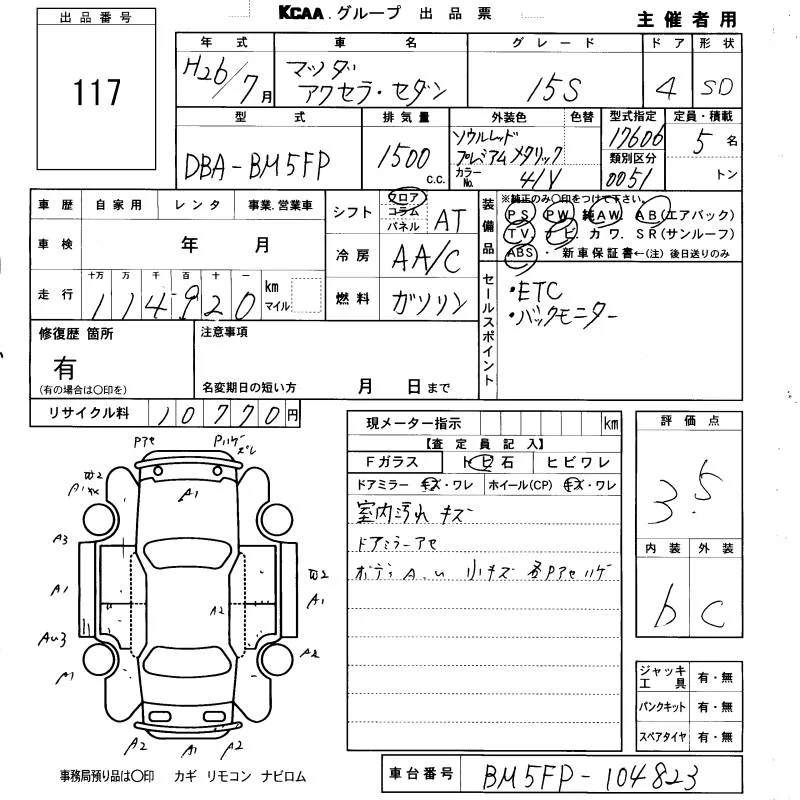 出品番号
117
KCAA.グループ 出品票
主催者用
年式 車名 グレード ドア 形状
H26/7月 マツダ アクセラ・セダン 15S 4 SD
型式 排気量 外装色 色替 型式指定 定員・積載
DBA-BM5FP 1500 c.c. ソウルレッド プレミアムメタリック 17606 5名
カラーNo. 41V 類別区分 0051 トン
車歴 自家用 レンタ 事業.営業車
シフト フロア コラム パネル AT
装備品 ※純正のみ〇印をつけて下さい。
PS PW 純AW AB(エアバック)
TV ナビ. カワ. SR(サンルーフ)
ABS ・ 新車保証書←(注)後日送りのみ
車検 年 月
冷房 AA/C
走行 十万 万 千 百 十 一
114920 km マイル
燃料 ガソリン
セールスポイント
・ETC
・バックモニター
修復歴 箇所
有
(有の場合は〇印を)
注意事項
名変期日の短い方 月 日まで
リサイクル料 10770円
現メーター指示 km
【査定員記入】
Fガラス トビ石 ヒビワレ
ドアミラー キズ・ワレ ホイール(CP) キズ・ワレ
室内汚れ キズ
ドアミラーアセ
ボディ A.U 小キズ 各Pアセハゲ
評価点
3.5
内装 外装
b C
Pアセ Pハゲ ズレ
A1
A3
A1 W2 A1
A2
AU3 A2
A1
A2 A1 A2
ジャッキ工具 有・無
パンクキット 有・無
スペアタイヤ 有・無
事務局預り品は〇印 カギ リモコン ナビロム
車台番号 BM5FP-104823